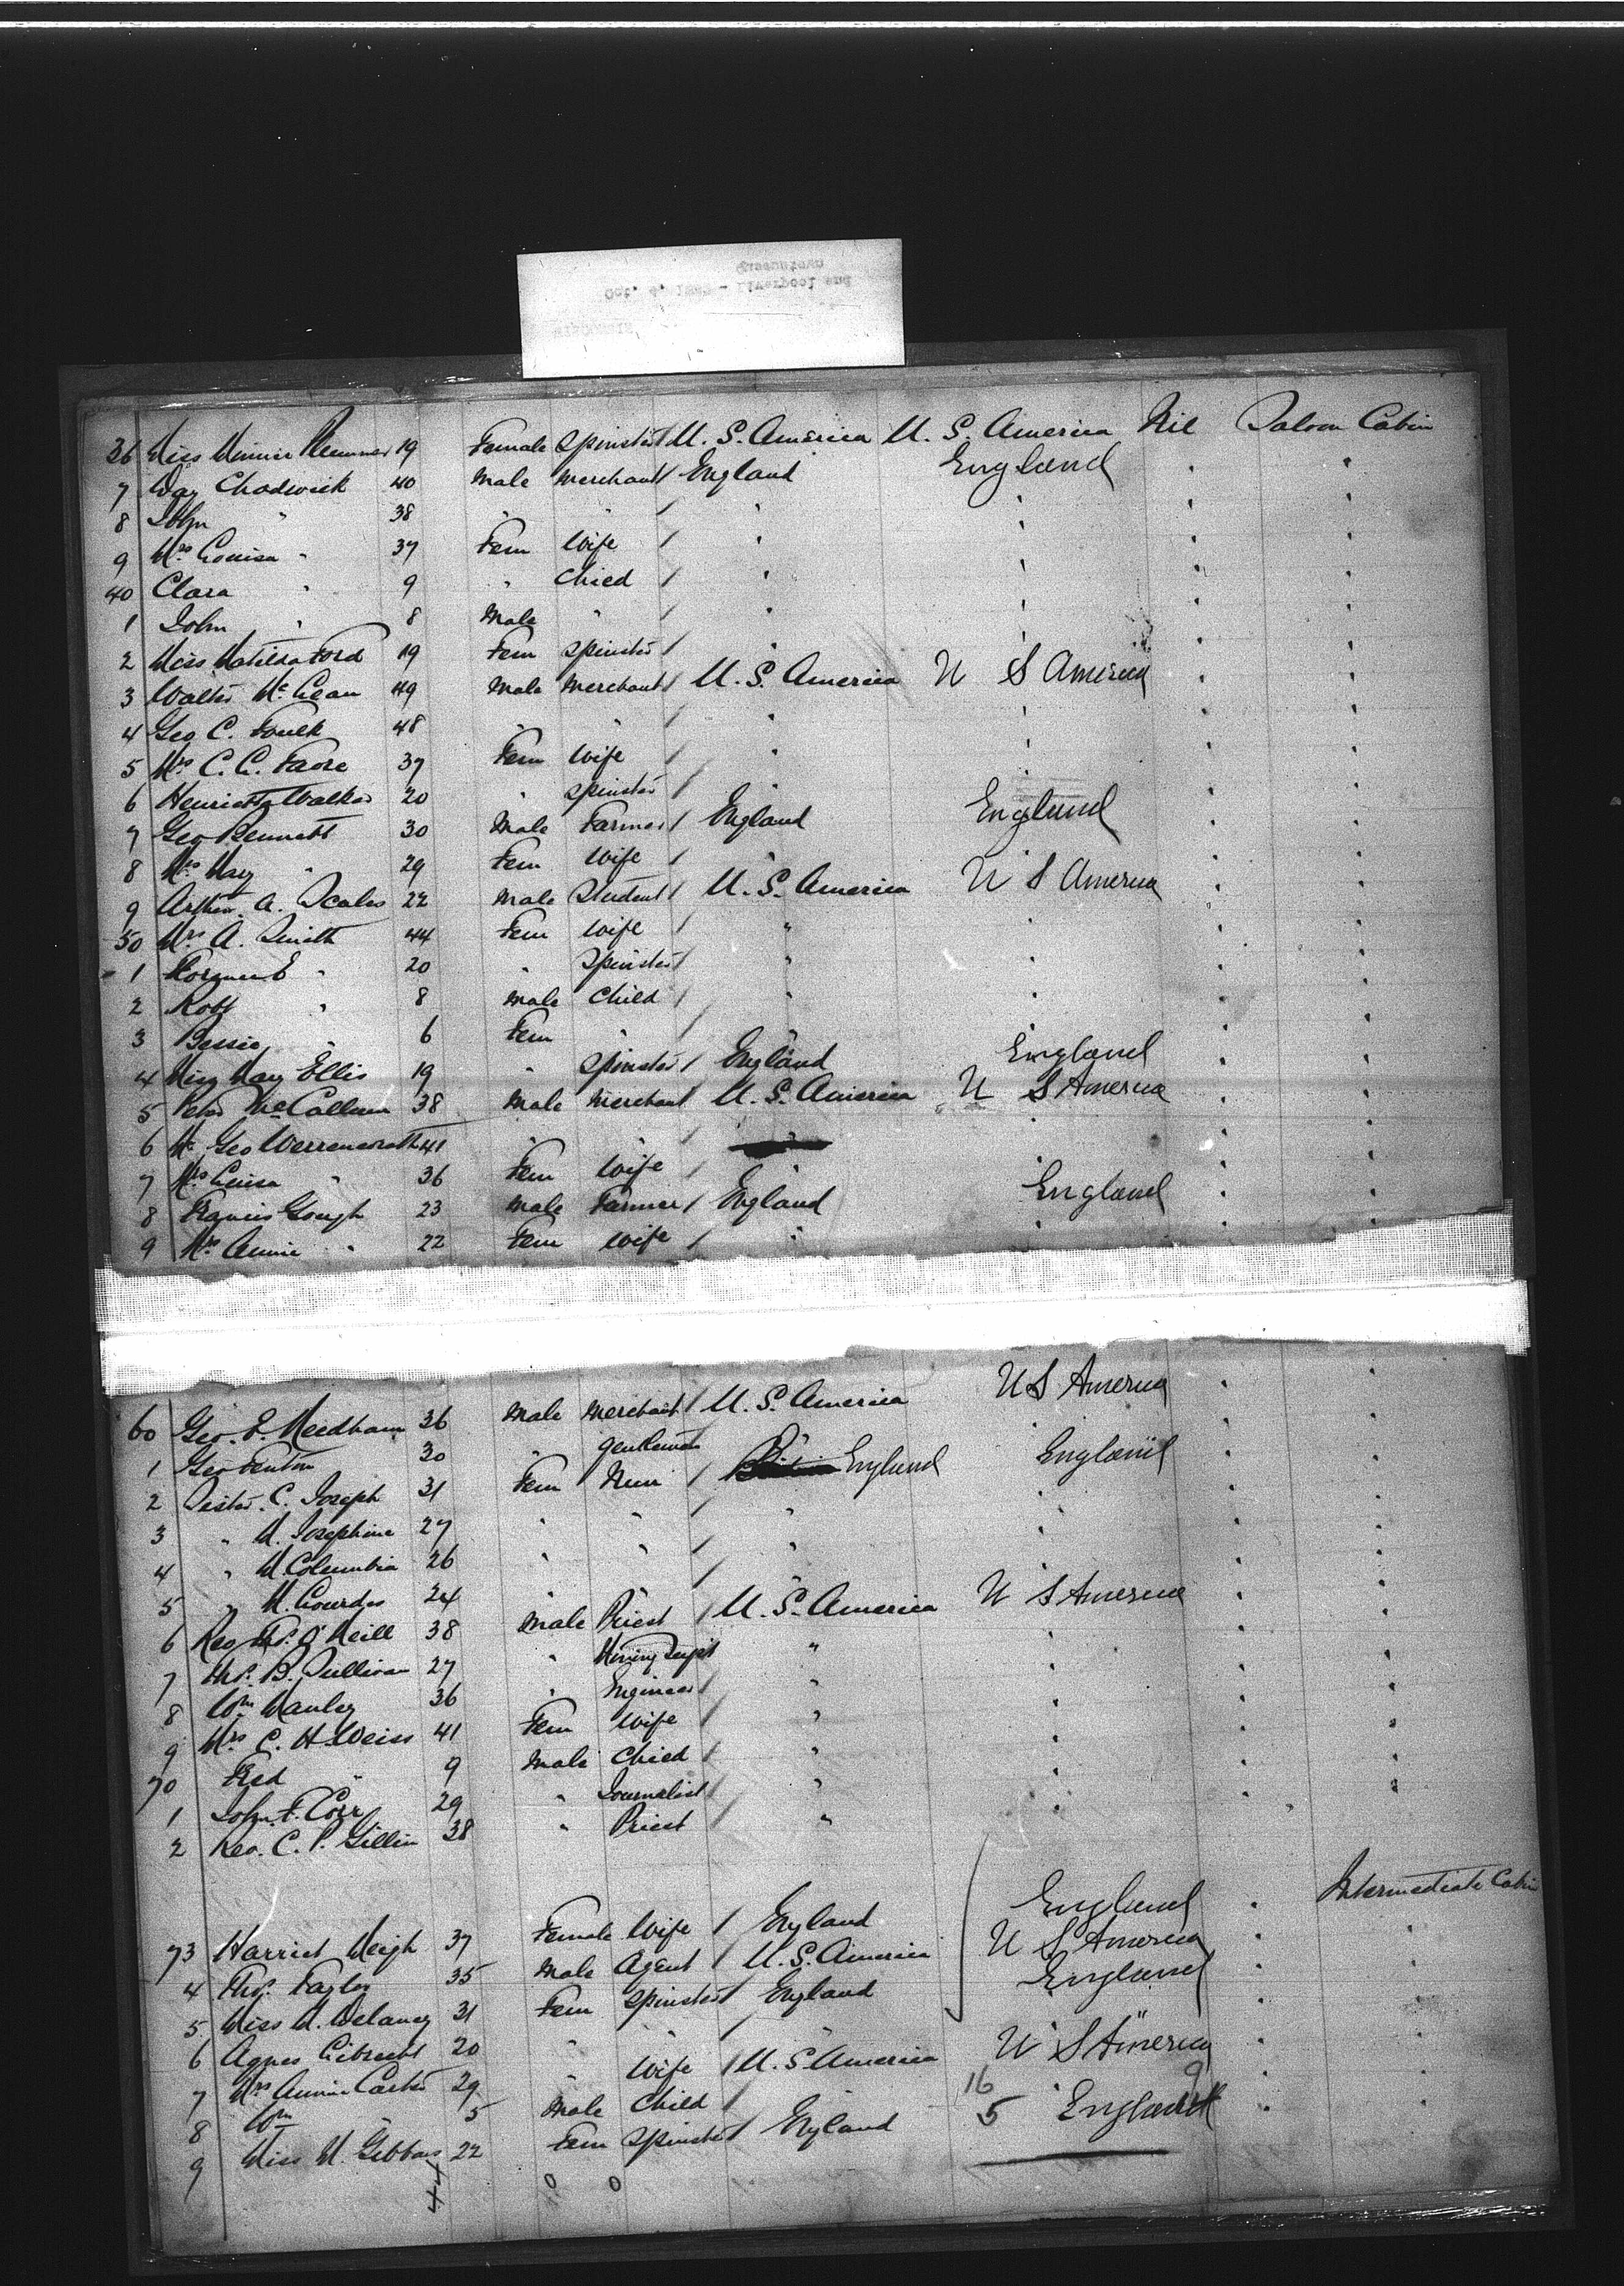 Oct. 4, - Liverpool and
Queenstown
36 Miss Minnie 19 Female Spinster U. S. America U. S. America Nil Saloon Cabin
7 Day Chadwick 40 Male Merchant England England
8 John " 38 " " "
9 Mrs Louisa " 37 Fem Wife "
40 Clara " 9 " Child "
1 John " 8 Male " "
2 Miss Matilda Ford 19 Fem Spinster "
3 Walter McLean 49 Male Merchant U. S. America U S America
4 Geo C. Foulk 48 " " "
5 Mrs C. C. 37 Fem Wife "
6 Henrietta Walker 20 " Spinster "
7 Geo Bennett 30 Male Farmer England England
8 Mrs May " 29 Fem Wife "
9 Arthur A. Scales 22 Male Student U. S. America U S America
50 Mrs A. Smith 44 Fem Wife "
1 E " 20 " Spinster "
2 Robt " 8 Male Child "
3 Bessie " 6 Fem " "
4 Miss May Ellis 19 " Spinster England England
5 Peter McCallum 38 Male Merchant U. S. America U S America
6 Mr Geo Werrenwrath 41 " "
7 Mrs Louisa " 36 Fem Wife "
8 Francis Gough 23 Male Farmer England England
9 Mrs Annie " 22 Fem Wife "
60 Geo. E. Needham 36 Male Merchant U. S. America U S America
1 Geo Fenton 30 " Gentleman England England
2 Sister C. Joseph 31 Fem Nun "
3 " M. Josephine 27 " " "
4 " M. Columbia 26 " " "
5 " M. Lourdes 24 " "
6 Rev O'Neill 38 Male Priest U. S. America U S America
7 Thos. B. Sullivan 27 " Mining Supt "
8 Wm Manley 36 " Engineer "
9 Mrs C. H. Weiss 41 Fem Wife "
70 Fred " 9 Male Child "
1 John F. Corr 29 " Journalist "
2 Rev. C. P. Gillin 38 " Priest "
73 Harriet Meigh 37 Female Wife England England Intermediate Cabin
4 Thos. Taylor 35 Male Agent U. S. America U S America
5 Miss M. Delaney 31 Fem Spinster England England
6 Agnes 20 " " "
7 Mrs Annie Carter 29 " Wife U. S. America U S America
8 Wm " 5 Male Child
16 9
9 Miss M. Gibbons 22 Fem Spinster England 5 England
44 0 0